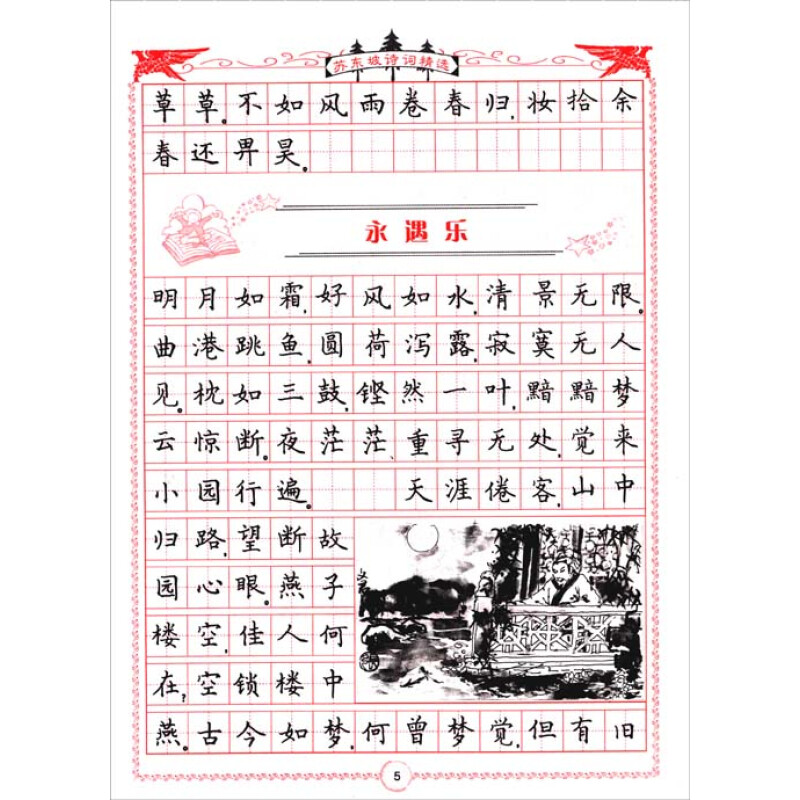 苏东坡诗词精选
草草。不如风雨卷春归,妆拾余
春还畀昊。
永遇乐
明月如霜,好风如水,清景无限。
曲港跳鱼。圆荷泻露,寂寞无人
见。枕如三鼓,铿然一叶,黯黯梦
云惊断。夜茫茫、重寻无处,觉来
小园行遍。 天涯倦客,山中
归路,望断故
园心眼。燕子
楼空,佳人何
在?空锁楼中
燕。古今如梦,何曾梦觉,但有旧
5